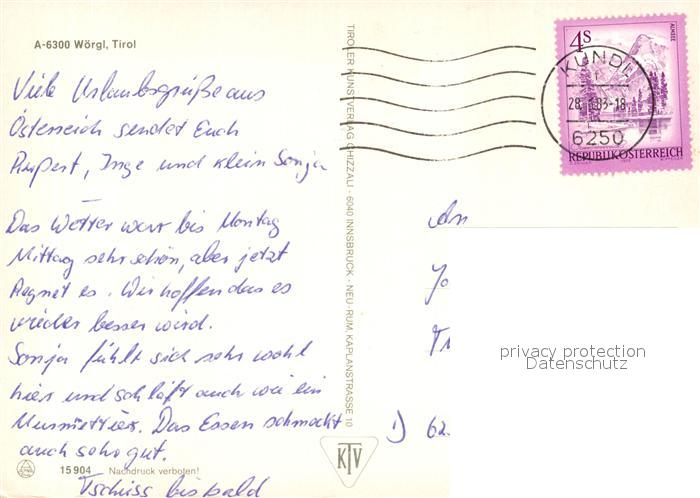 A-6300 Wörgl, Tirol
Viele Urlaubsgrüße aus
Österreich sendet Euch
Ruppert, Inge und klein Sonja
Das Wetter war bis Montag
Mittag sehr schön, aber jetzt
Regnet es. Wir hoffen das es
wieder besser wird.
Sonja fühlt sich sehr wohl
hier und schläft auch wie ein
Murmeltier. Das Essen schmeckt
auch sehr gut.
Tschüss bis bald
15904 Nachdruck verboten!
TIROLER KUNSTVERLAG CHIZZALI · 6040 INNSBRUCK - NEU-RUM KAPLANSTRASSE 10
KTV
4S
ALMSEE
KUNDL
28. 83-18
6250
REPUBLIK ÖSTERREICH
An
62
privacy protection
Datenschutz